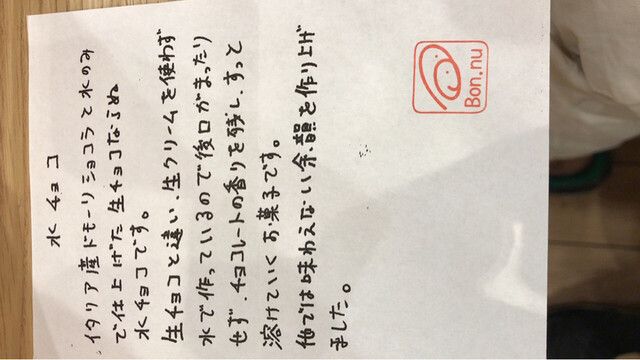 水チョコ
イタリア産ドモーリショコラと水のみ
で仕上げた生チョコならぬ
水チョコです。
生チョコと違い、生クリームを使わず
水で作っているので後口がまったり
せず、チョコレートの香りを残し、すっと
溶けていくお菓子です。
他では味わえない余韻を作り上げ
ました。
Bon.nu